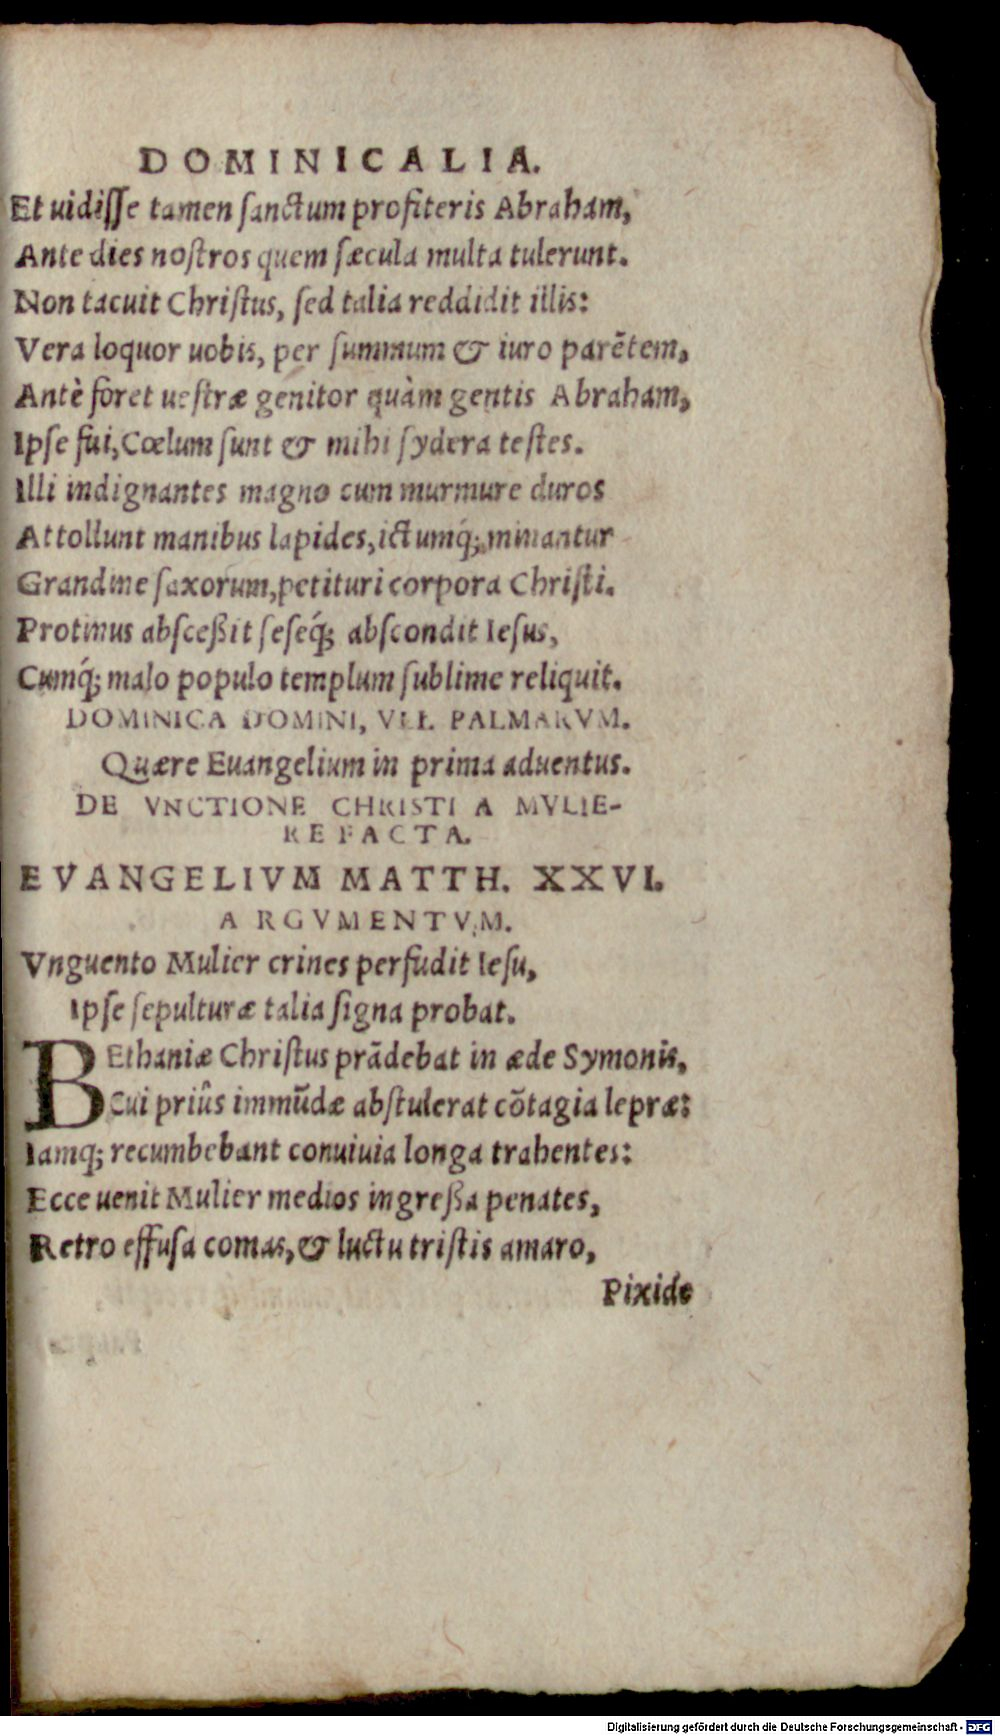 DOMINICALIA.
Et uidiſſe tamen ſanctum profiteris Abraham,
Ante dies noſtros quem ſæcula multa tulerunt.
Non tacuit Chriſtus, ſed talia reddidit illis:
Vera loquor uobis, per ſummum & iuro parẽtem,
Antè foret ueſtræ genitor quàm gentis Abraham,
Ipſe fui, Cœlum ſunt & mihi ſydera teſtes.
Illi indignantes magno cum murmure duros
Attollunt manibus lapides, ictumq́; minantur
Grandine ſaxorum, petituri corpora Chriſti.
Protinus abſceßit ſeſeq́; abſcondit Ieſus,
Cumq́; malo populo templum ſublime reliquit.
DOMINICA DOMINI, VEL PALMARVM.
Quære Euangelium in prima aduentus.
DE VNCTIONE CHRISTI A MVLIE-
RE FACTA.
EVANGELIVM MATTH. XXVI.
ARGVMENTVM.
Vnguento Mulier crines perfudit Ieſu,
Ipſe ſepulturæ talia ſigna probat.
BEthaniæ Chriſtus prãdebat in æde Symonis,
Cui priûs immũdæ abſtulerat cõtagia lepræ:
Iamq; recumbebant conuiuia longa trahentes:
Ecce uenit Mulier medios ingreßa penates,
Retro effuſa comas, & luctu triſtis amaro,
Pixide
Digitalisierung gefördert durch die Deutsche Forschungsgemeinschaft - DFG